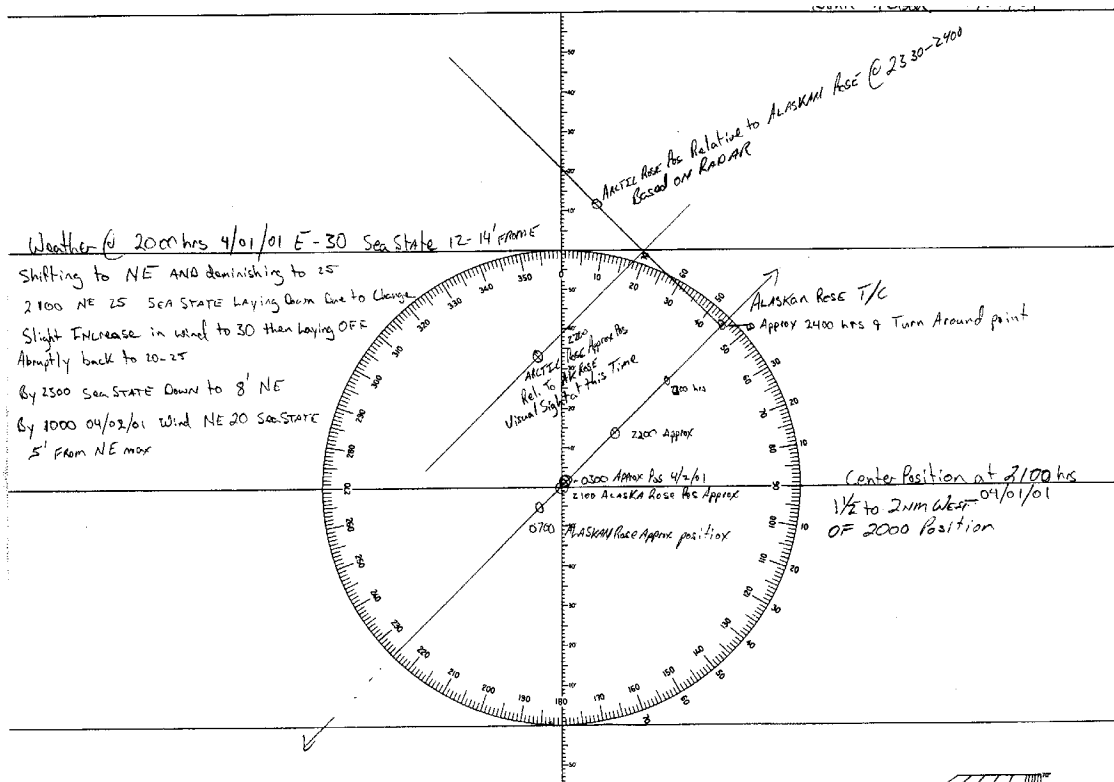 ARCTIC ROSE Pos Relative to ALASKAN ROSE @ 2330-2400
Based on RADAR
Weather @ 2000 hrs 4/01/01 E-30 Sea State 12-14' FROM E
Shifting to NE AND deminishing to 25
2100 NE 25 SEA STATE Laying Down Due to Change
Slight Increase in wind to 30 then Laying OFF
Abruptly back to 20-25
By 2300 Sea STATE Down to 8' NE
By 1000 04/02/01 Wind NE 20 Sea STATE
5' From NE max
ALASKAN ROSE T/C
Approx 2400 hrs & Turn Around point
2200
ARCTIC ROSE Approx Pos
Rel. To AK ROSE
Visual Sight at this Time
hrs
2200 Approx
0300 Approx Pos 4/2/01
2100 ALASKA ROSE Pos Approx
0700 ALASKAN ROSE Approx position
Center Position at 2100 hrs
04/01/01
1 1/2 to 2 nm WEST
OF 2000 Position